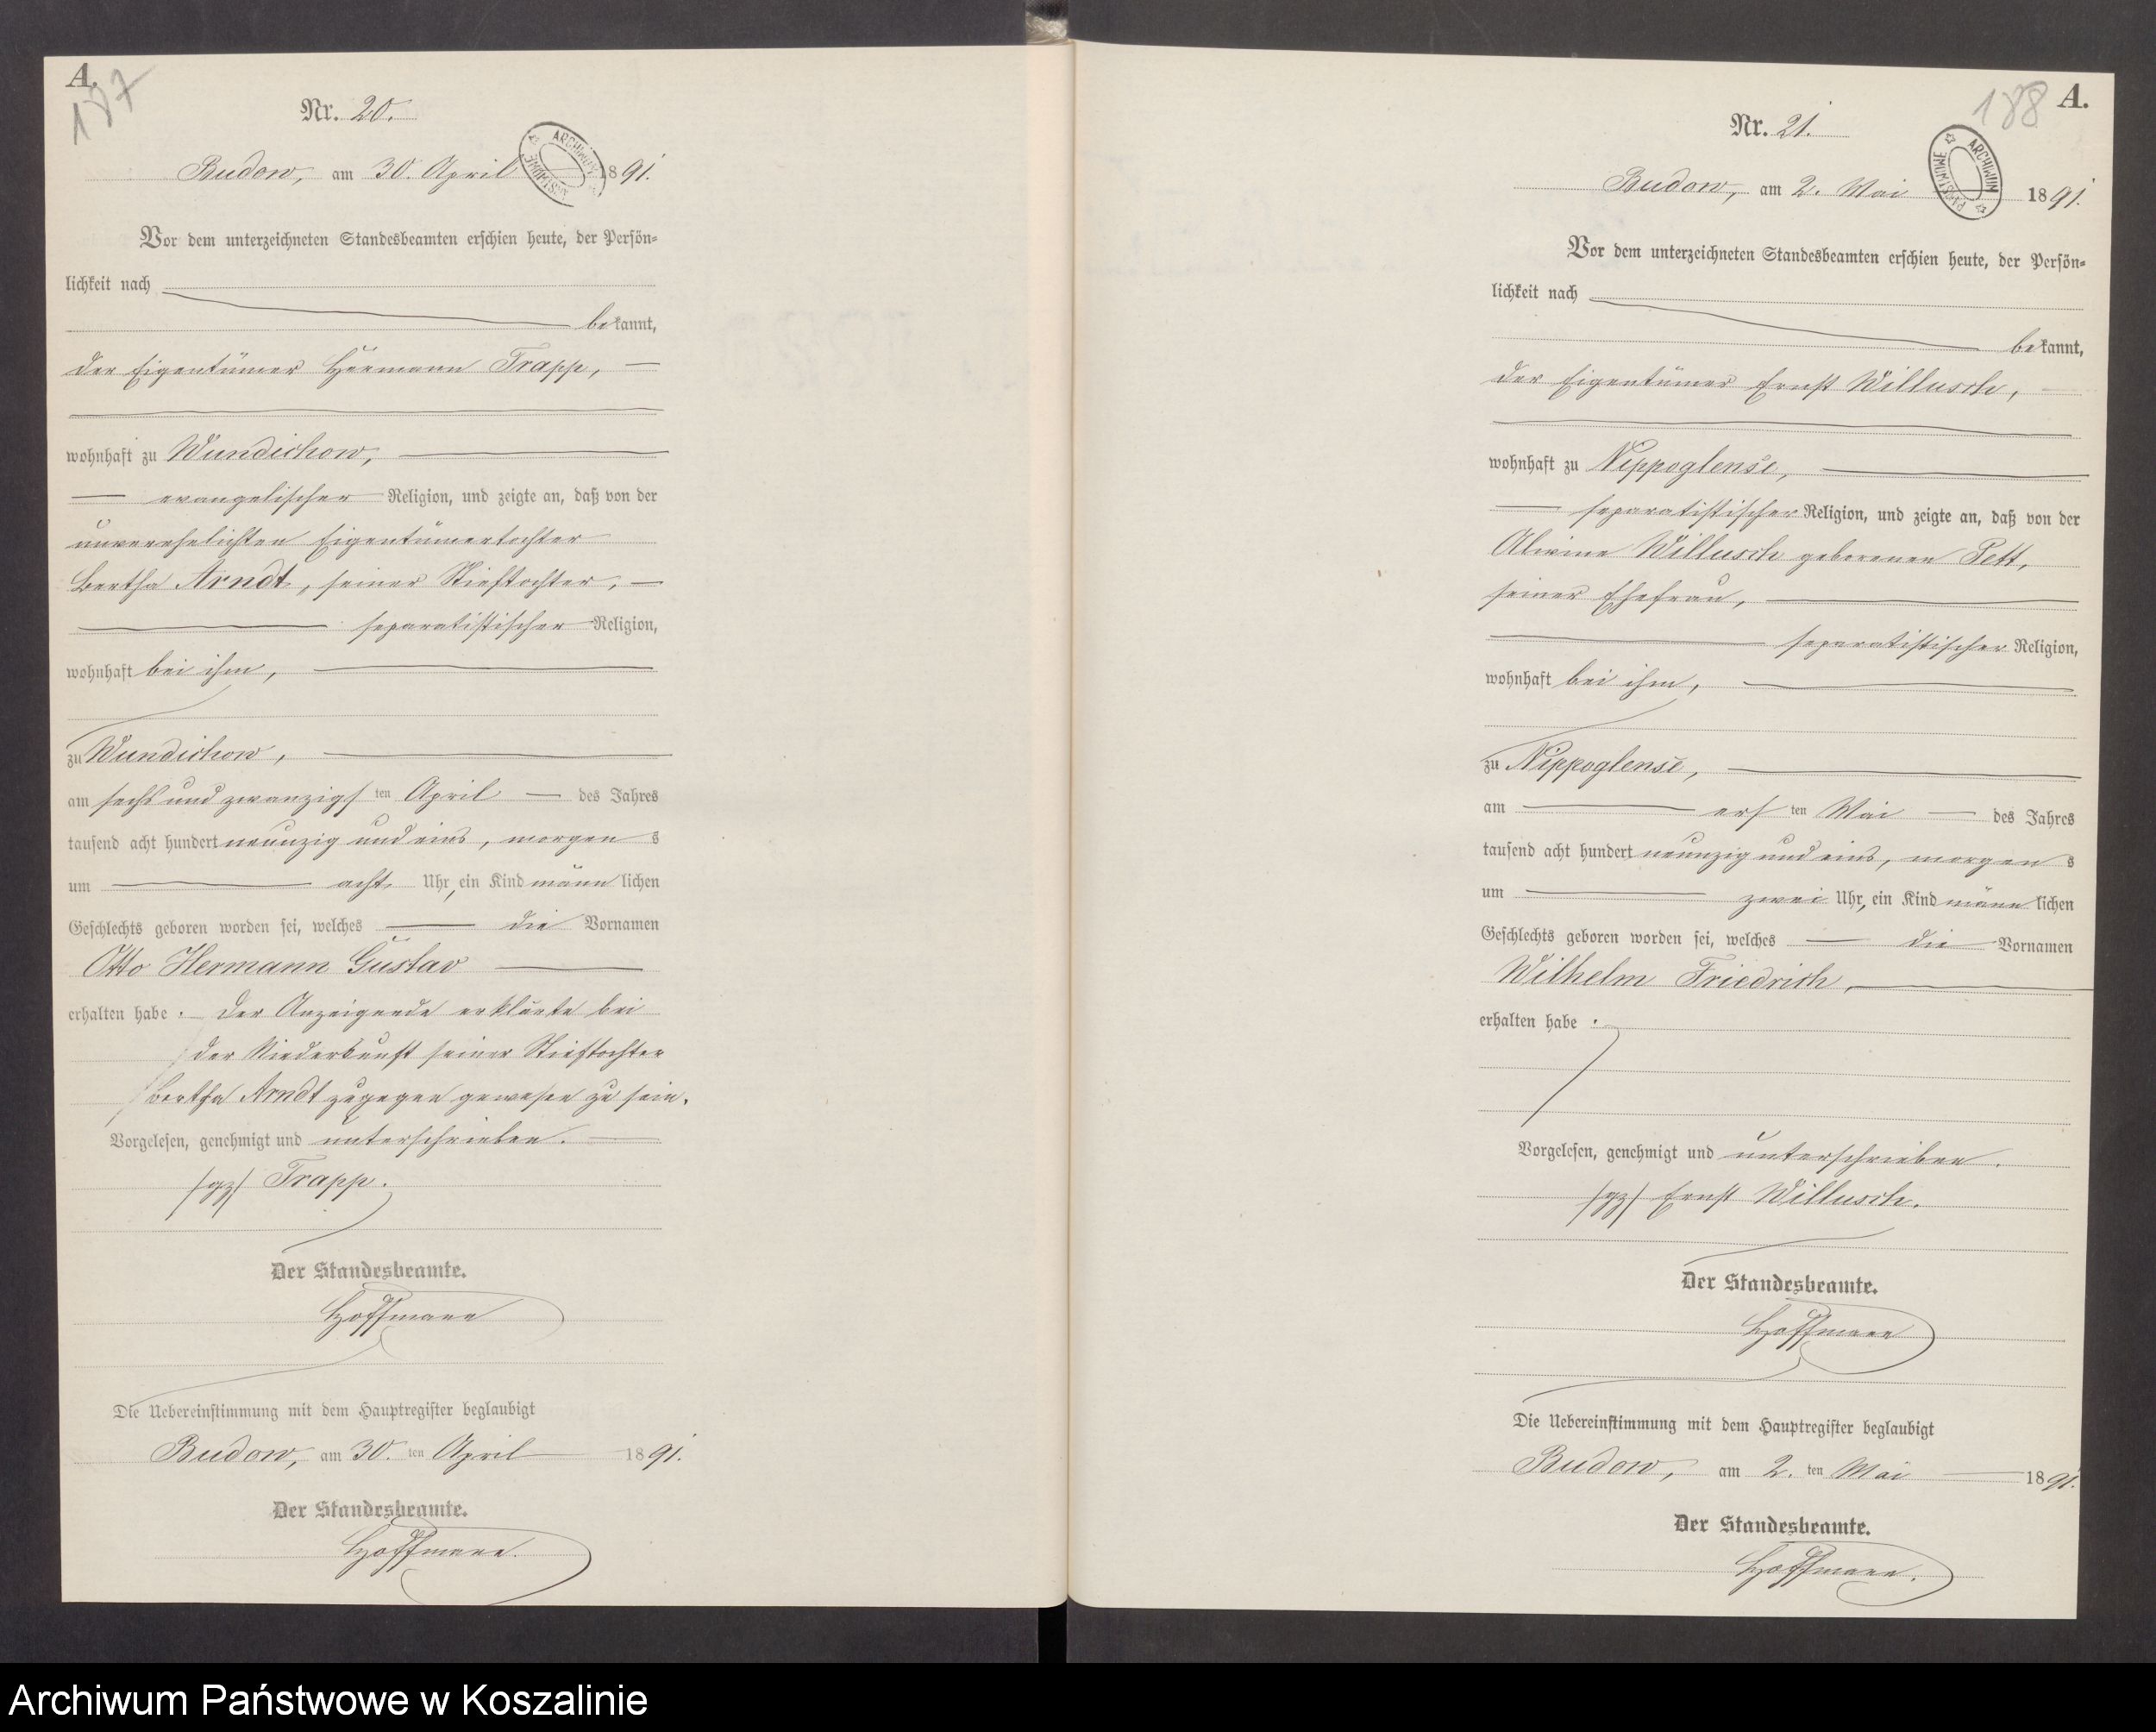 A.
187
Nr. 20.
Budow, am 30. April 1891.
ARCHIWUM PAŃSTWOWE
Vor dem unterzeichneten Standesbeamten erschien heute, der Persön=
lichkeit nach
bekannt,
der Eigentümer Hermann Trapp,
wohnhaft zu Wundichow,
evangelischer Religion, und zeigte an, daß von der
unverehelichten Eigentümertochter
Bertha Arndt, seiner Stieftochter,
separatistischer Religion,
wohnhaft bei ihm,
zu Wundichow,
am sechs und zwanzigsten April des Jahres
tausend acht hundert neunzig und eins, morgens
um acht Uhr, ein Kind männlichen
Geschlechts geboren worden sei, welches die Vornamen
Otto Hermann Gustav
erhalten habe. Der Anzeigende erklärte bei
der Niederkunft seiner Stieftochter
Bertha Arndt zugegen gewesen zu sein.
Vorgelesen, genehmigt und unterschrieben.
/gz/ Trapp.
Der Standesbeamte.
Hoffmann
Die Uebereinstimmung mit dem Hauptregister beglaubigt
Budow, am 30. ten April 1891.
Der Standesbeamte.
Hoffmann.
A.
188
Nr. 21.
Budow, am 2. Mai 1891.
ARCHIWUM PAŃSTWOWE
Vor dem unterzeichneten Standesbeamten erschien heute, der Persön=
lichkeit nach
bekannt,
der Eigentümer Ernst Willusch,
wohnhaft zu Nippoglense,
separatistischer Religion, und zeigte an, daß von der
Alwine Willusch geborenen Pett,
seiner Ehefrau,
separatistischer Religion,
wohnhaft bei ihm,
zu Nippoglense,
am ersten Mai des Jahres
tausend acht hundert neunzig und eins, morgens
um zwei Uhr, ein Kind männlichen
Geschlechts geboren worden sei, welches die Vornamen
Wilhelm Friedrich,
erhalten habe.
Vorgelesen, genehmigt und unterschrieben.
/gz/ Ernst Willusch.
Der Standesbeamte.
Hoffmann
Die Uebereinstimmung mit dem Hauptregister beglaubigt
Budow, am 2. ten Mai 1891.
Der Standesbeamte.
Hoffmann.
Archiwum Państwowe w Koszalinie